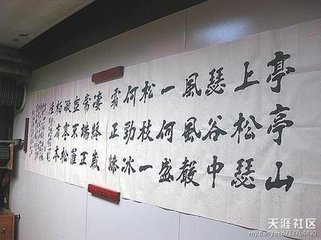 亭亭山
上松瑟
瑟谷中
風風聲
一何盛
松枝一
何勁冰
霜正慘
淒終歲
常端正
豈不羅
凝寒松
柏有本
天涯社区